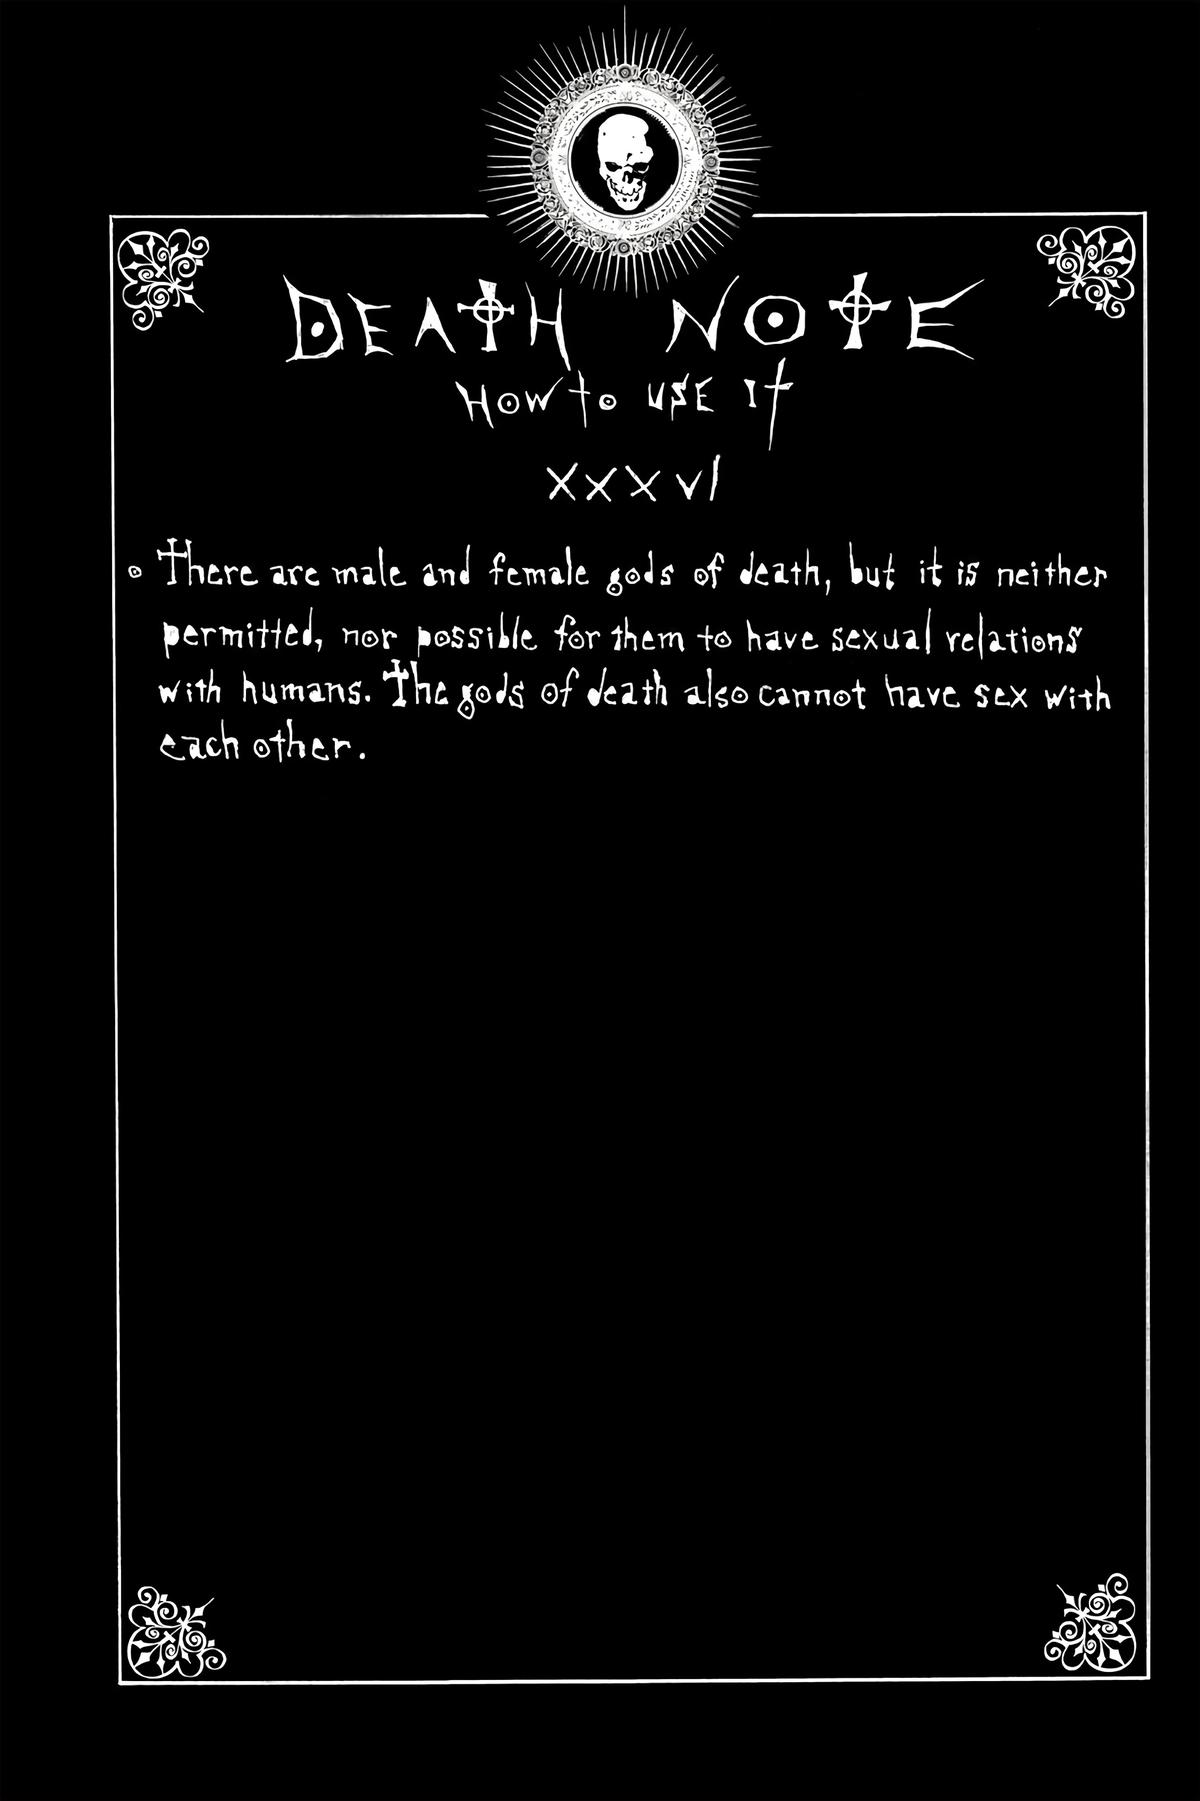 DEATH NOTE
How to use it
XXXVI
There are male and female gods of death, but it is neither
permitted, nor possible for them to have sexual relations
with humans. The gods of death also cannot have sex with
each other.